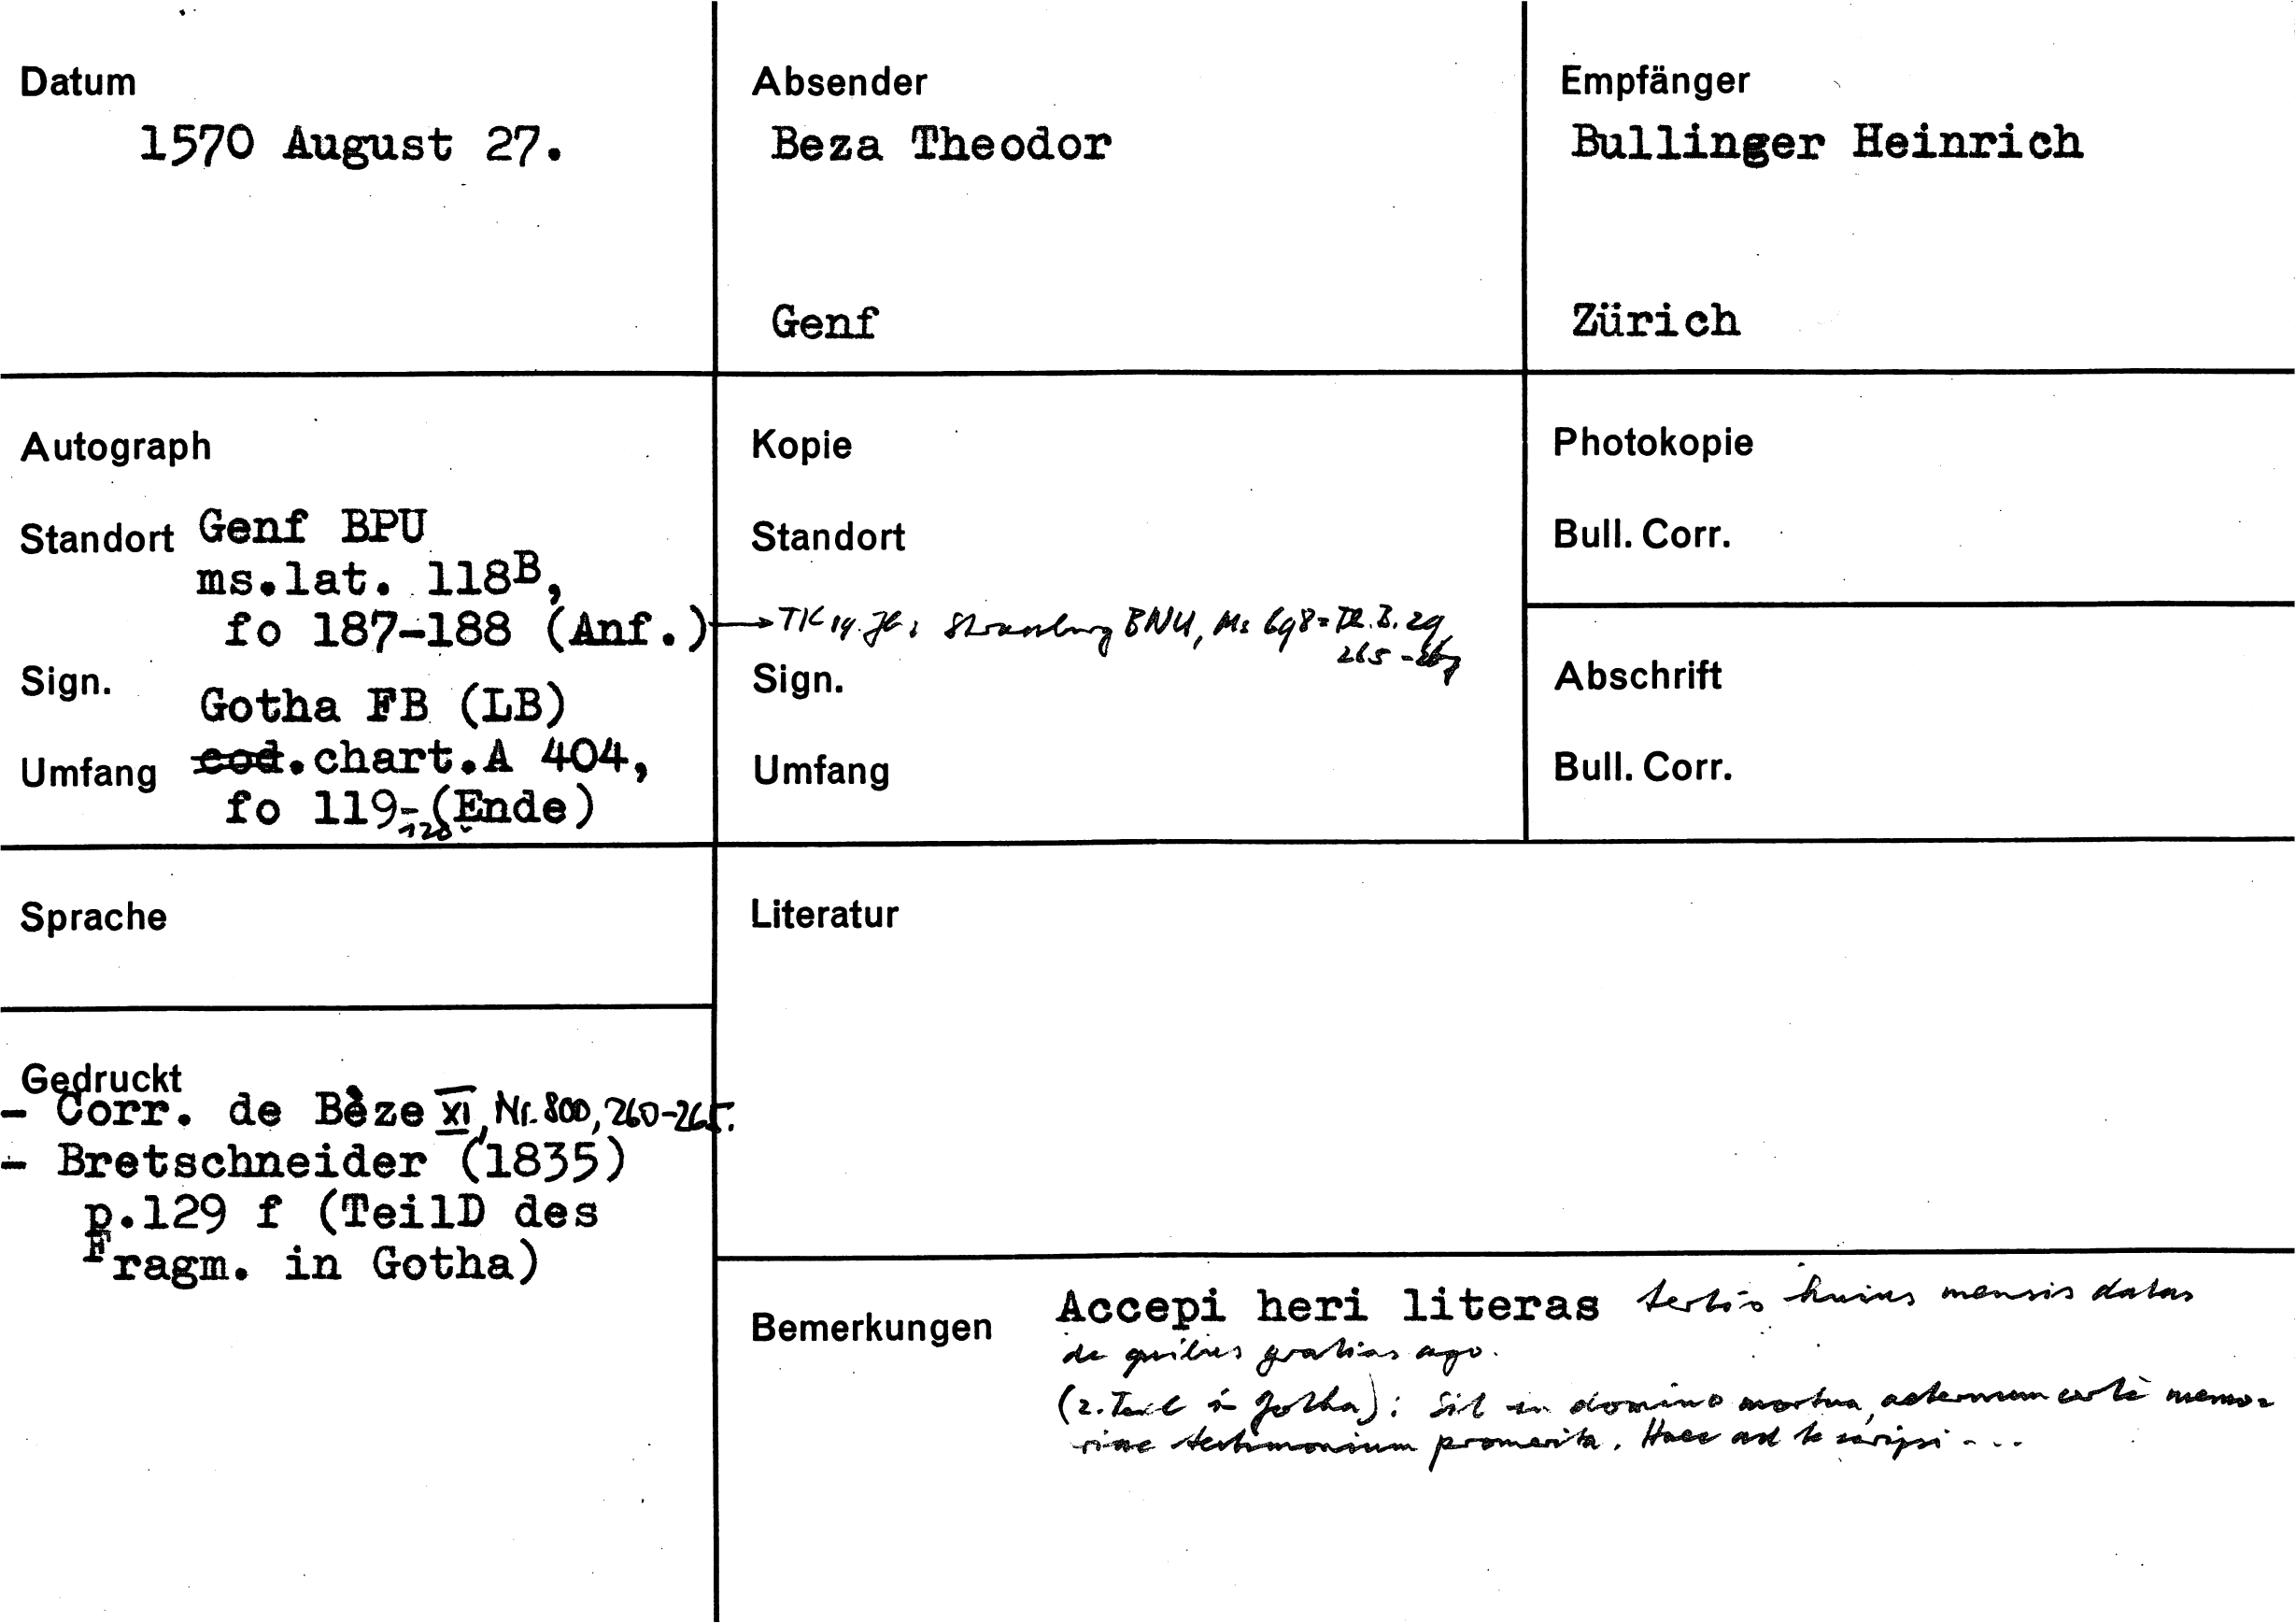 Datum
1570 August 27.
Absender
Beza Theodor
Genf
Empfänger
Bullinger Heinrich
Zürich
Autograph
Standort Genf BPU
ms.lat. 118B,
fo 187-188 (Anf.)
Sign.
Gotha FB (LB)
Umfang cod.chart.A 404,
fo 119-120 (Ende)
Kopie
Standort
→ TK 19. Jh: Strassburg BNU, Ms 698 =
265-267
Sign.
Umfang
Photokopie
Bull. Corr.
Abschrift
Bull. Corr.
Sprache
Gedruckt
- Corr. de Bèze XI, Nr. 800, 260-265.
- Bretschneider (1835)
p.129 f (TeilD des
Fragm. in Gotha)
Literatur
Bemerkungen
Accepi heri literas tertio huius mensis datas
de quibus gratias ago.
(2. Teil in Gotha): Sit in domino mortua, aeternum certè memo=
riae testimonium promerita. Haec ad te scripsi ...